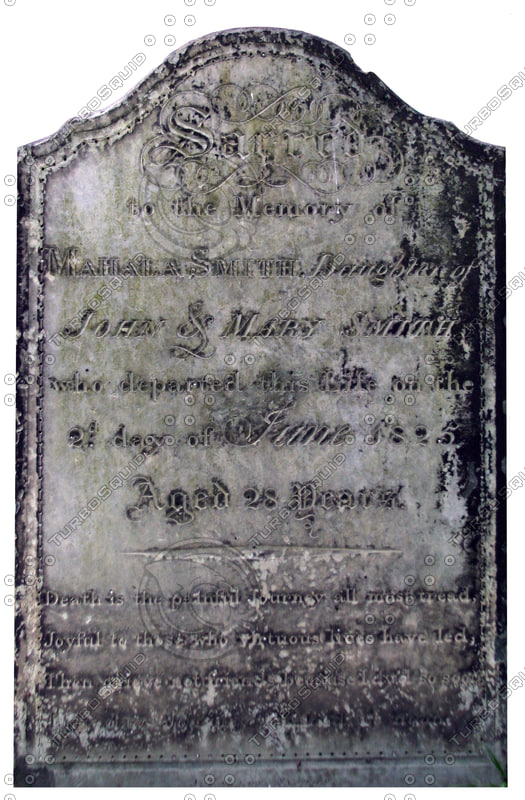 Sacred
to the Memory of
MAHALA SMITH, Daughter of
JOHN & MARY SMITH
who departed this life on the
2d day of June 1825
Aged 28 Years.
Death is the painful Journey all must tread,
Joyful to those who virtuous lives have led,
Then grieve not friends because I died so soon
TURBOSQUID